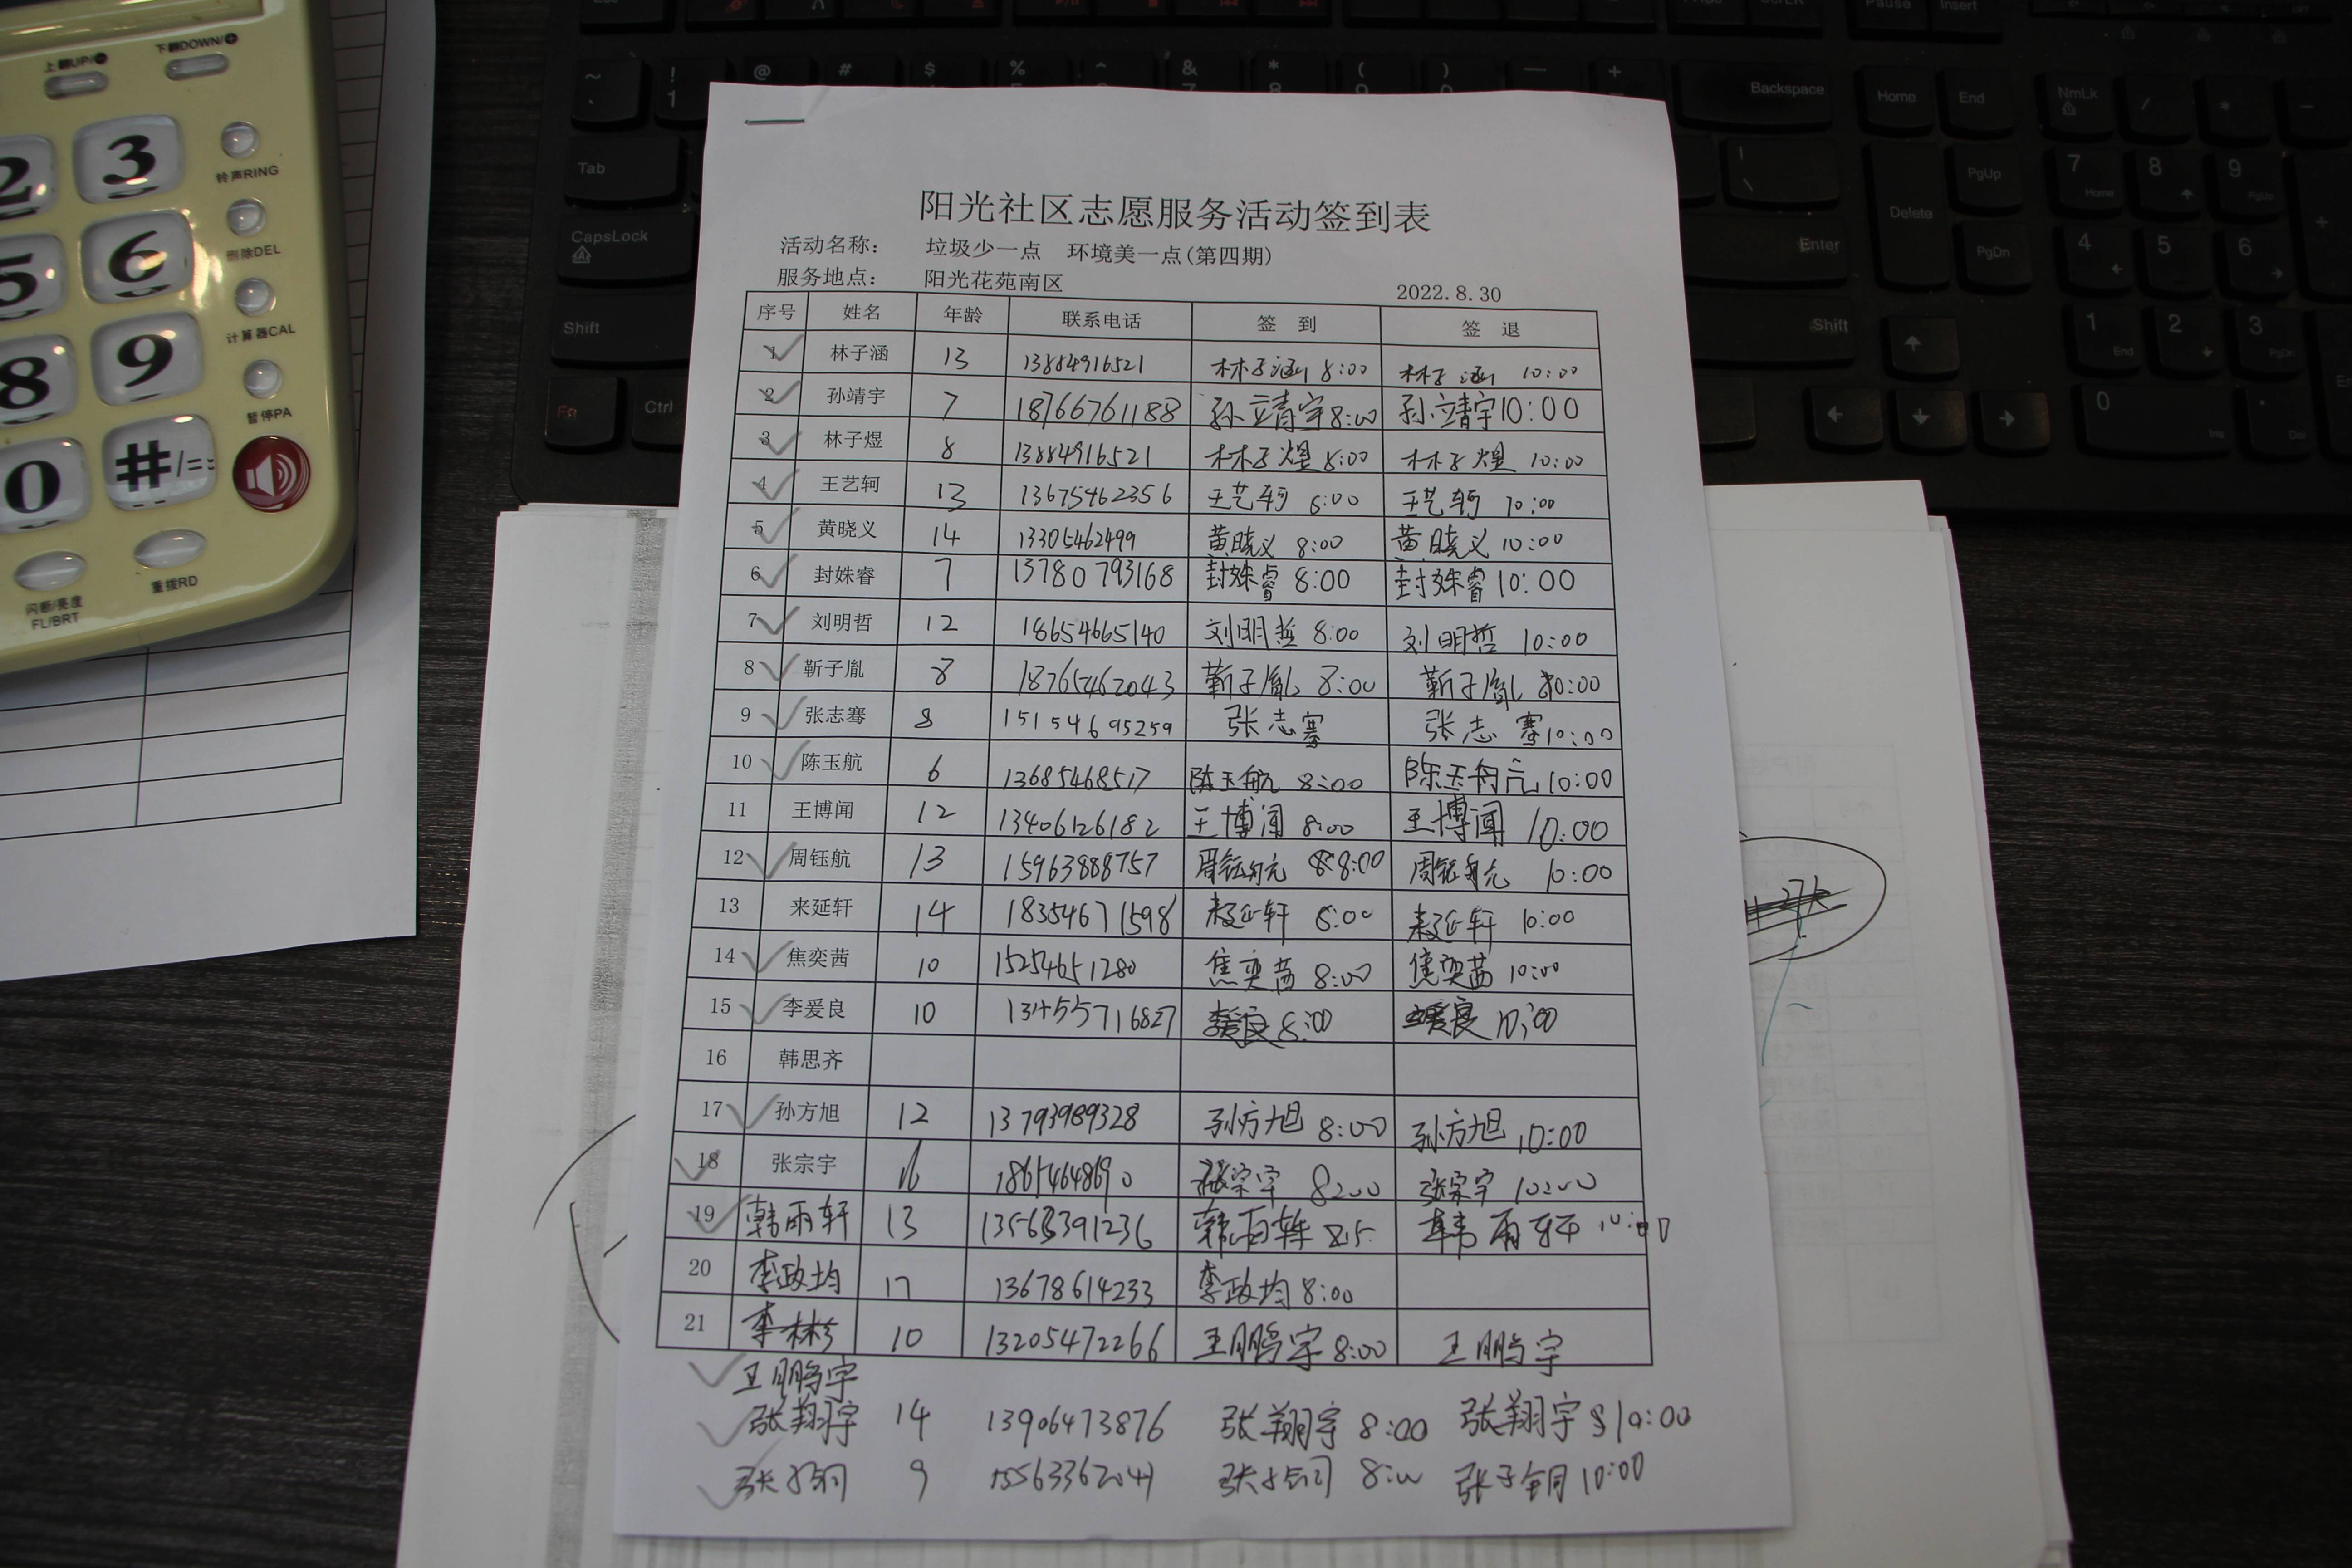 阳光社区志愿服务活动签到表
活动名称： 垃圾少一点 环境美一点(第四期)
服务地点： 阳光花苑南区 2022.8.30
序号 姓名 年龄 联系电话 签 到 签 退
1 林子涵 13 13884916521 林子涵 8:00 林子涵 10:00
2 孙靖宇 7 18766761188 孙靖宇 8:00 孙靖宇 10:00
3 林子煜 8 13884916521 林子煜 8:00 林子煜 10:00
4 王艺轲 13 13675462356 王艺轲 8:00 王艺轲 10:00
5 黄晓义 14 13305462499 黄晓义 8:00 黄晓义 10:00
6 封姝睿 7 13780793168 封姝睿 8:00 封姝睿 10:00
7 刘明哲 12 18654665140 刘明哲 8:00 刘明哲 10:00
8 靳子胤 8 18765462043 靳子胤 8:00 靳子胤 10:00
9 张志骞 8 15154695259 张志骞 张志骞 10:00
10 陈玉航 6 13685468517 陈玉航 8:00 陈玉航 10:00
11 王博闻 12 13406126182 王博闻 8:00 王博闻 10:00
12 周钰航 13 15963888757 周钰航 8:00 周钰航 10:00
13 来延轩 14 18354671598 来延轩 8:00 来延轩 10:00
14 焦奕茜 10 15254651280 焦奕茜 8:00 焦奕茜 10:00
15 李爱良 10 李爱良 8:00 10:00
16 韩思齐
17 孙方旭 12 13793989328 孙方旭 8:00 孙方旭 10:00
18 张宗宇 16 张宗宇 8:00 张宗宇 10:00
19 韩雨轩 13 韩雨轩 韩雨轩 10:00
20 李政均 17 13678614233 李政均 8:00
21 10 13205472266 王鹏宇 8:00 王鹏宇
王鹏宇
张翔宇 14 13906473876 张翔宇 8:00 张翔宇 10:00
9 8:00 10:00
上翻UP/
下翻DOWN/
2 3
铃声RING
5 6
删除DEL
8 9
计算器CAL
0 #/==
暂停PA
闪断/亮度
FL/BRT
重拨RD
Tab
CapsLock
Shift
Fn Ctrl
~
! 1
@ # $ % ^ & * ( ) — +
Pause Insert
Backspace
Home End
Delete
PgUp
PgDn
Enter
Shift
NmLk / * -
7 Home 8 9 PgUp +
4 5 6
1 End 2 3 PgDn
0 Ins . Del